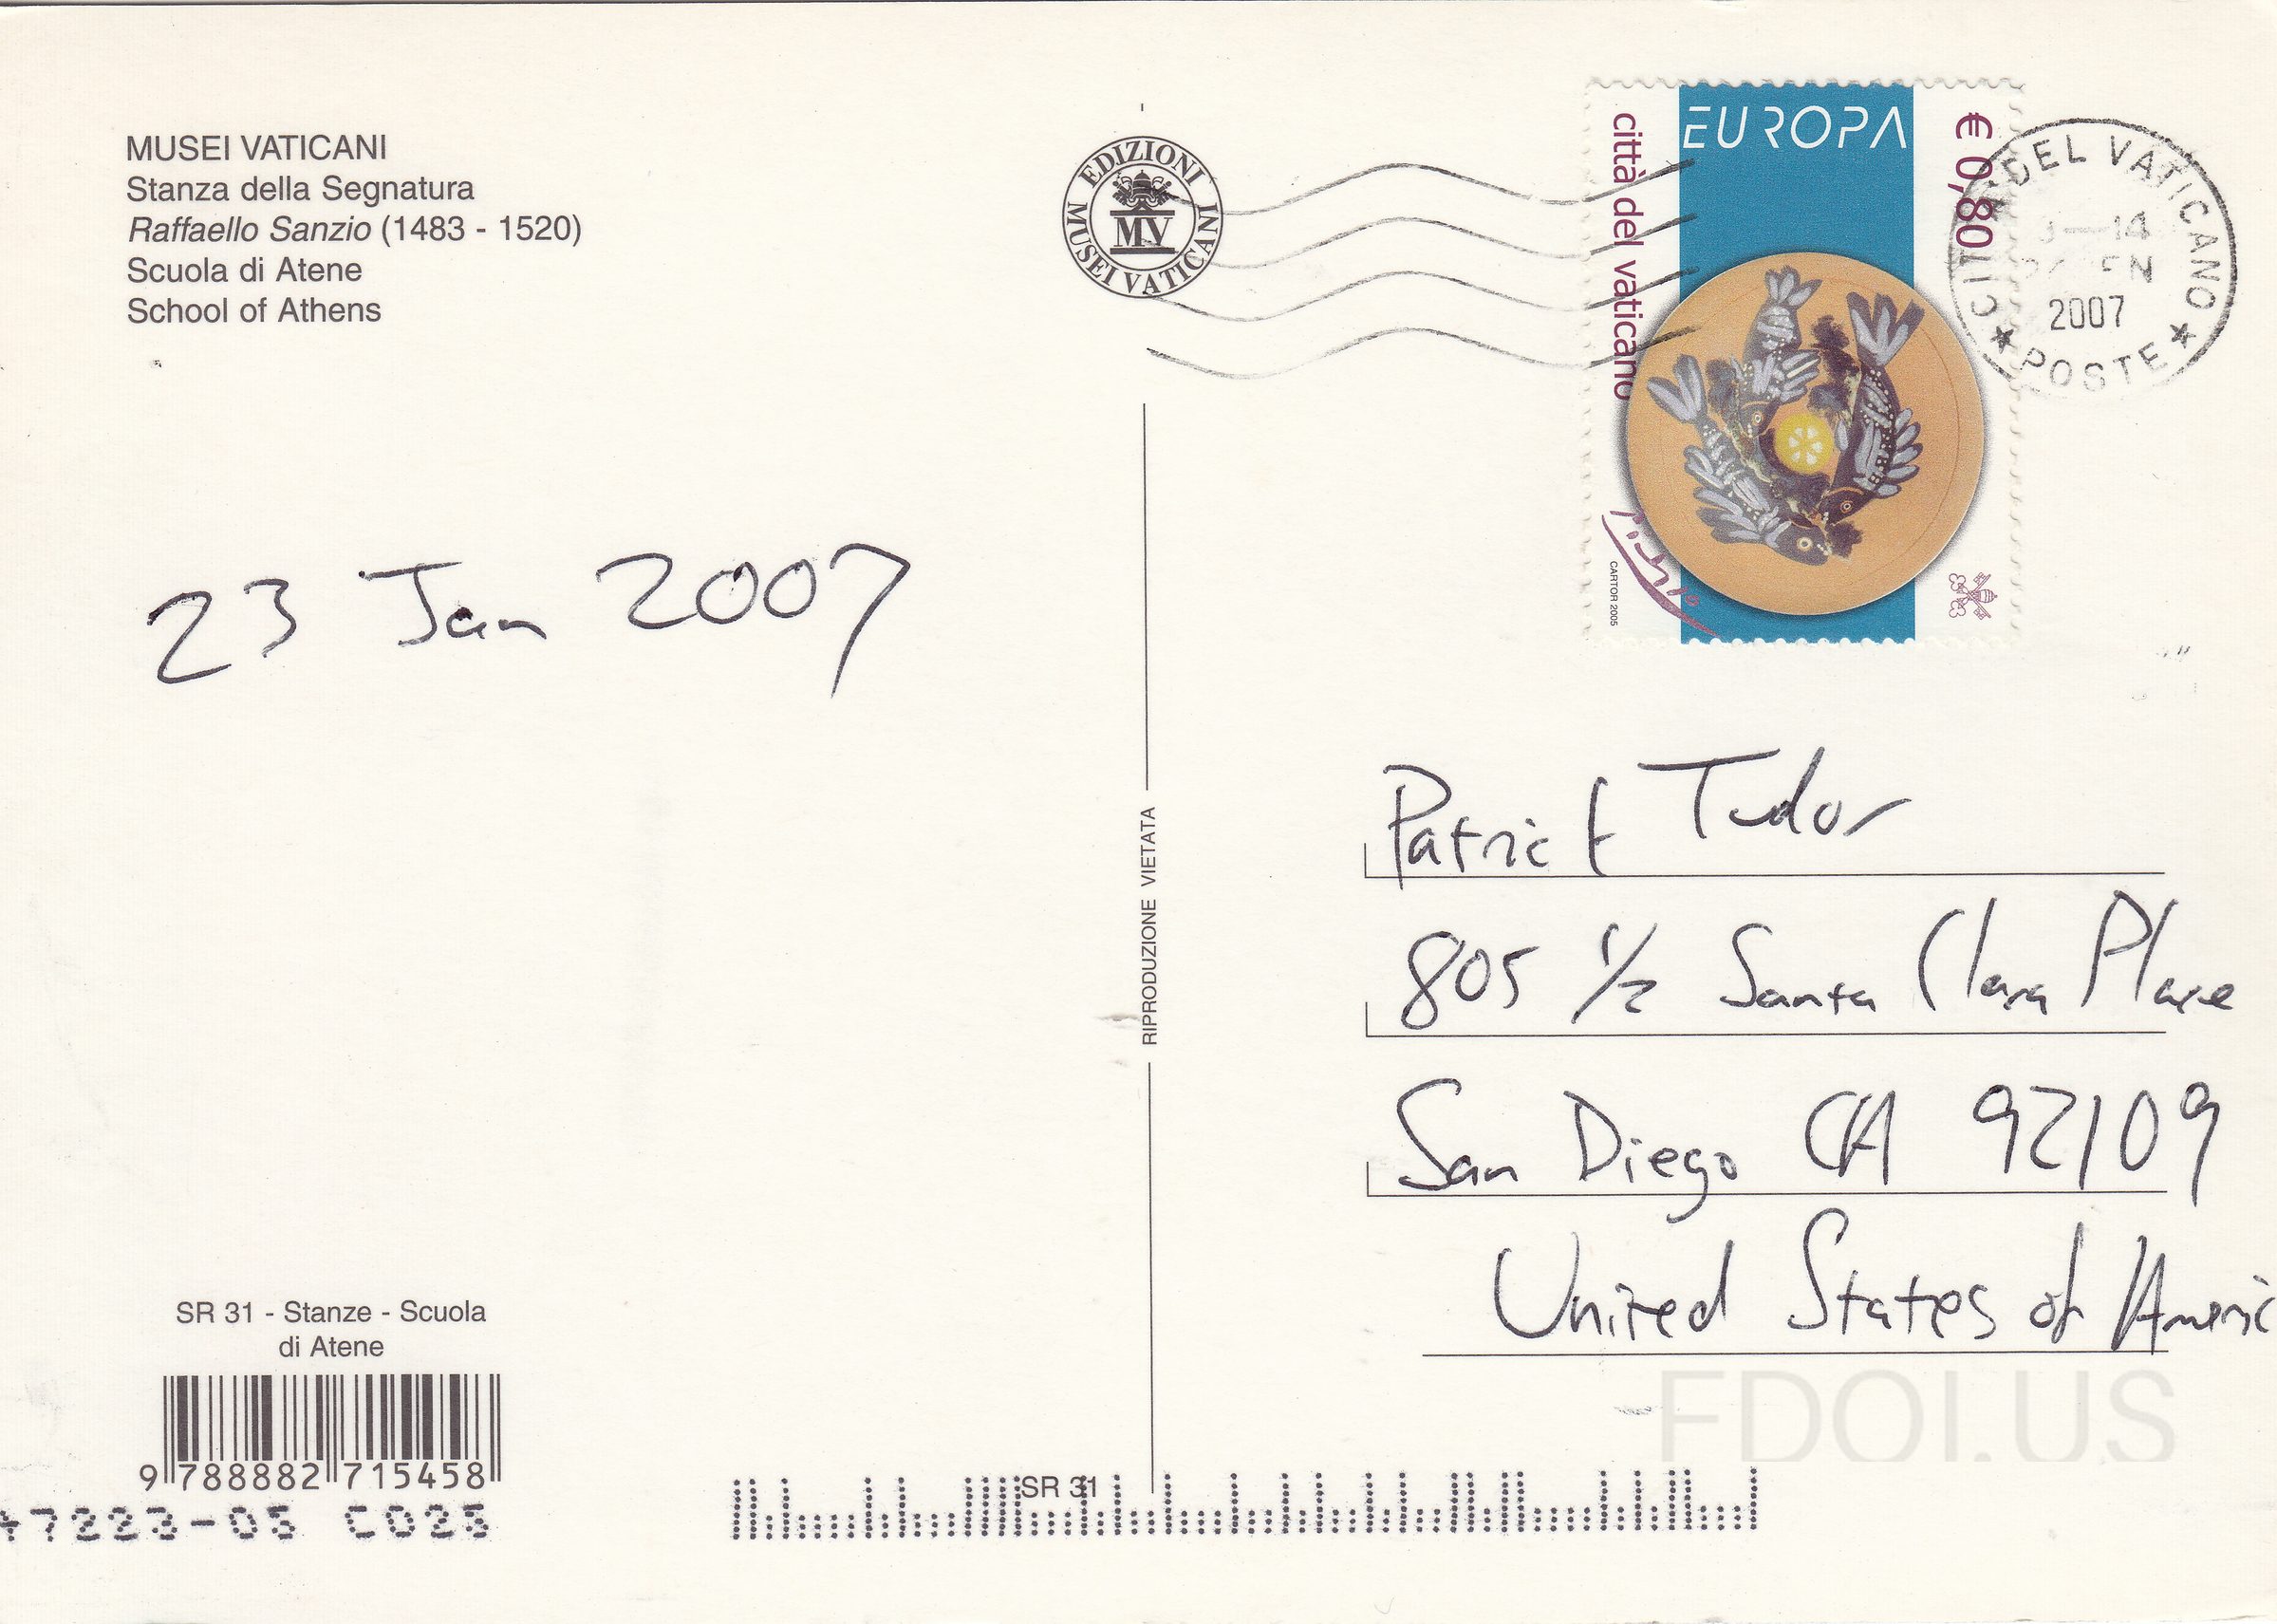 MUSEI VATICANI
Stanza della Segnatura
Raffaello Sanzio (1483 - 1520)
Scuola di Atene
School of Athens
EDIZIONI
MUSEI VATICANI
MV
EUROPA
città del vaticano
€ 0,80
CARTOR 2005
CITTA' DEL VATICANO
14
2007
POSTE
23 Jan 2007
RIPRODUZIONE VIETATA
Patrick Tudor
805 1/2 Santa Clara Place
San Diego CA 92109
United States of Americ
FDOI.US
SR 31 - Stanze - Scuola
di Atene
9 788882 715458
47223-05 C025
SR 31